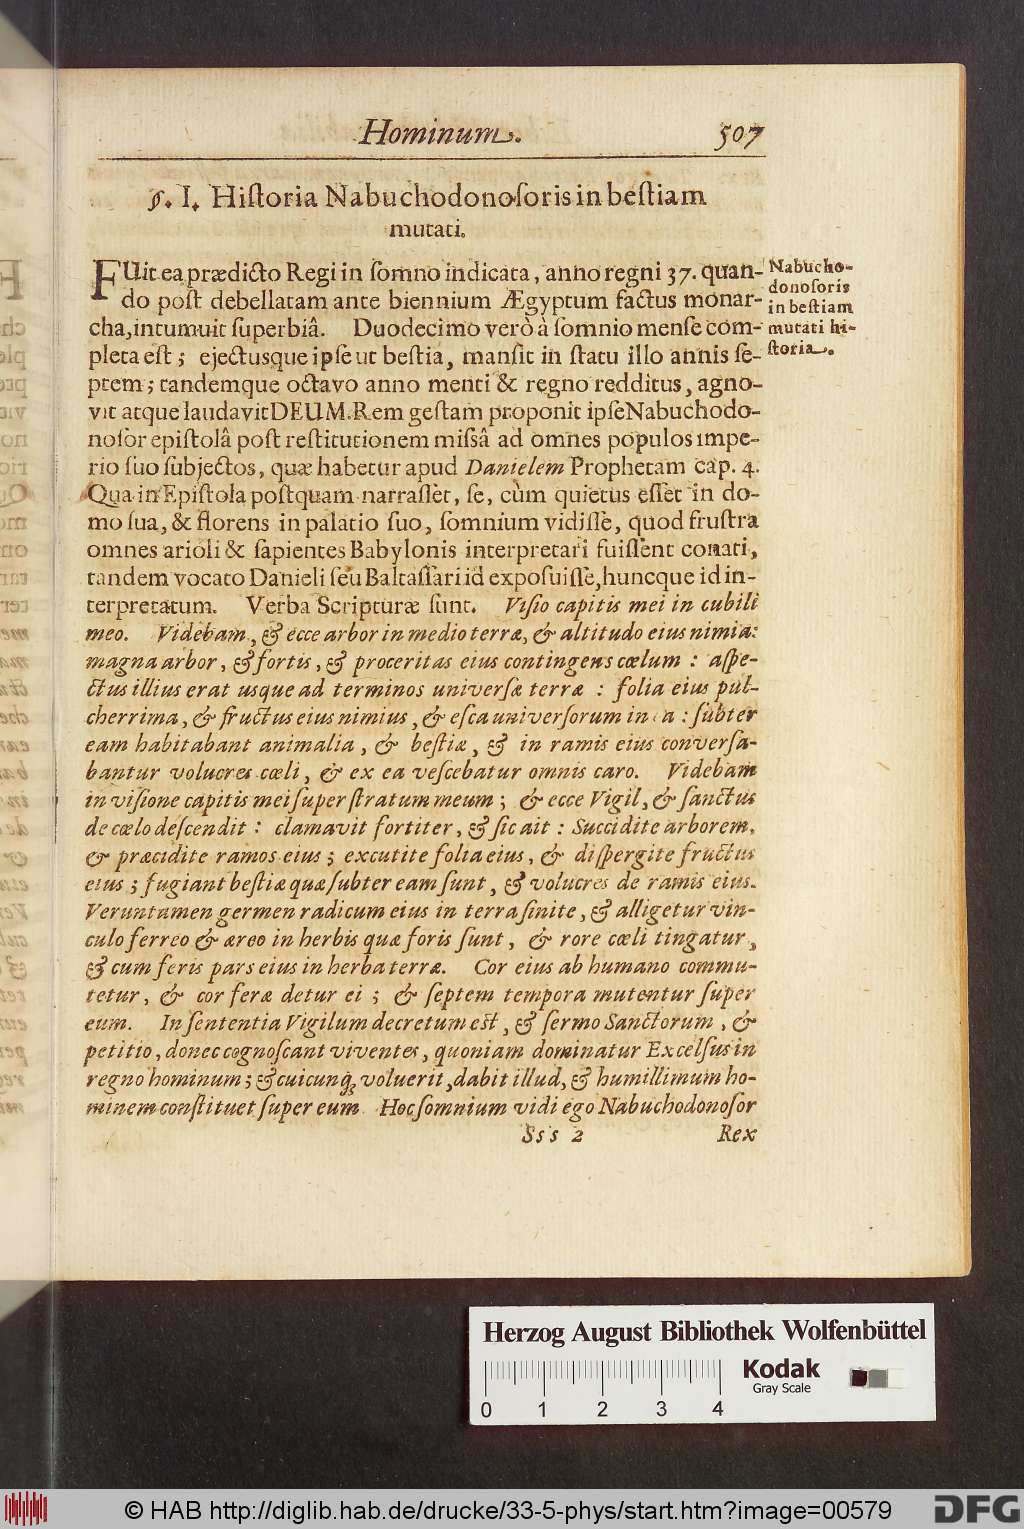 Hominum. 507
§. I. Hiſtoria Nabuchodonoſoris in beſtiam
mutati.
FUit ea prædicto Regi in ſomno indicata, anno regni 37. quan-
do poſt debellatam ante biennium Ægyptum factus monar-
cha, intumuit ſuperbiâ. Duodecimo verò à ſomnio menſe com-
pleta eſt; ejectusque ipſe ut beſtia, manſit in ſtatu illo annis ſe-
ptem; tandemque octavo anno menti & regno redditus, agno-
vit atque laudavit DEUM. Rem geſtam proponit ipſe Nabuchodo-
noſor epiſtolâ poſt reſtitutionem miſsâ ad omnes populos impe-
rio ſuo ſubjectos, quæ habetur apud Danielem Prophetam cap. 4.
Qua in Epiſtola poſtquam narraſſet, ſe, cùm quietus eſſet in do-
mo ſua, & florens in palatio ſuo, ſomnium vidiſſe, quod fruſtra
omnes arioli & ſapientes Babylonis interpretari fuiſſent conati,
tandem vocato Danieli ſeu Baltaſſari id expoſuiſſe, huncque id in-
terpretatum. Verba Scripturæ ſunt. Viſio capitis mei in cubili
meo. Videbam, & ecce arbor in medio terræ, & altitudo eius nimia:
magna arbor, & fortis, & proceritas eius contingens cœlum : aſpe-
ctus illius erat usque ad terminos univerſæ terræ : folia eius pul-
cherrima, & fructus eius nimius, & eſca univerſorum in a : ſubter
eam habitabant animalia, & beſtiæ, & in ramis eius converſa-
bantur volucres cœli, & ex ea veſcebatur omnis caro. Videbam
in viſione capitis mei ſuper ſtratum meum; & ecce Vigil, & ſanctus
de cœlo deſcendit : clamavit fortiter, & ſic ait : Succidite arborem,
& præcidite ramos eius; excutite folia eius, & diſpergite fructus
eius; fugiant beſtiæ quæ ſubter eam ſunt, & volucres de ramis eius.
Veruntamen germen radicum eius in terra ſinite, & alligetur vin-
culo ferreo & æreo in herbis quæ foris ſunt, & rore cœli tingatur,
& cum feris pars eius in herba terræ. Cor eius ab humano commu-
tetur, & cor feræ detur ei; & ſeptem tempora mutentur ſuper
eum. In ſententia Vigilum decretum eſt, & ſermo Sanctorum, &
petitio, donec cognoſcant viventes, quoniam dominatur Excelſus in
regno hominum; & cuicunq; voluerit, dabit illud, & humillimum ho-
minem conſtituet ſuper eum. Hoc ſomnium vidi ego Nabuchodonoſor
Sss 2 Rex
Nabucho-
donoſoris
in beſtiam
mutati hi-
ſtoria.
Herzog August Bibliothek Wolfenbüttel
Kodak
Gray Scale
0 1 2 3 4
© HAB http://diglib.hab.de/drucke/33-5-phys/start.htm?image=00579
DFG